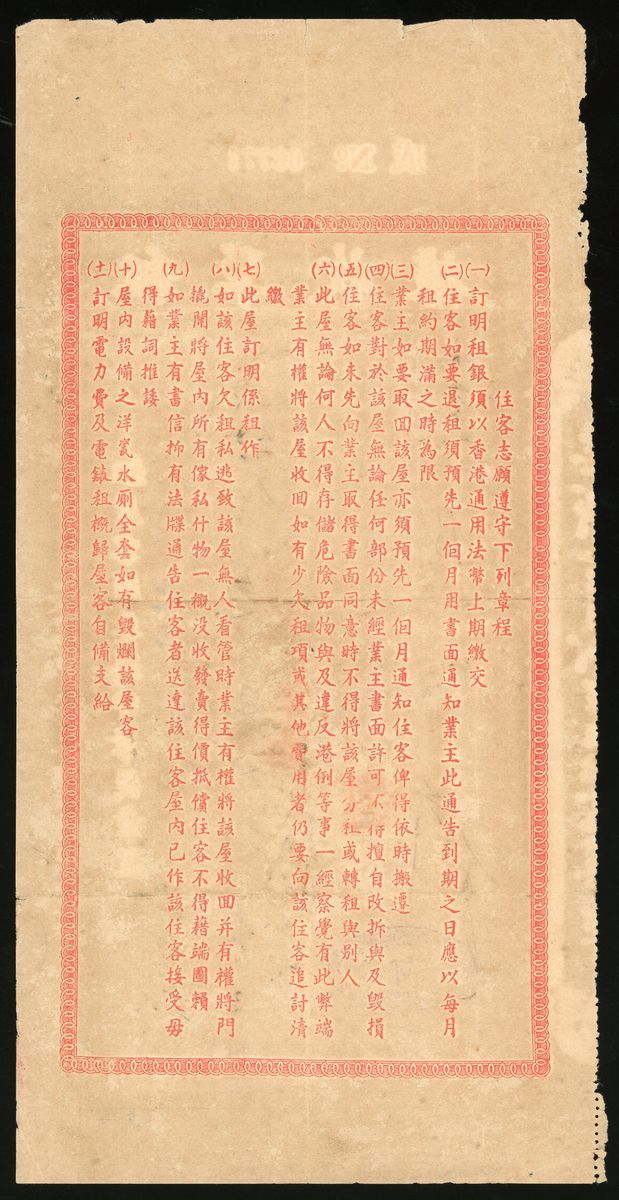 住客志願遵守下列章程
(一)訂明租銀須以香港通用法幣上期繳交
(二)住客如要退租須預先一個月用書面通知業主此通告到期之日應以每月
租約期滿之時為限
(三)業主如要取回該屋亦須預先一個月通知住客俾得依時搬遷
(四)住客對於該屋無論任何部份未經業主書面許可不得擅自改拆與及毀損
(五)住客如未先向業主取得書面同意時不得將該屋分租或轉租與別人
(六)此屋無論何人不得存儲危險品物與及違反港例等事一經察覺有此弊端
業主有權將該屋收回如有少欠租項或其他費用者仍要向該住客追討清
繳
(七)此屋訂明係租作
(八)如該住客欠租私逃致該屋無人看管時業主有權將該屋收回并有權將門
撬開將屋內所有傢私什物一概没收發賣得價抵償住客不得藉端圖賴
(九)如業主有書信抑有法牒通告住客者送達該住客屋內已作該住客接受毋
得藉詞推諉
(十)屋內設備之洋瓷水廁全套如有毀爛該屋客
(十一)訂明電力費及電鏢租概歸屋客自備支給